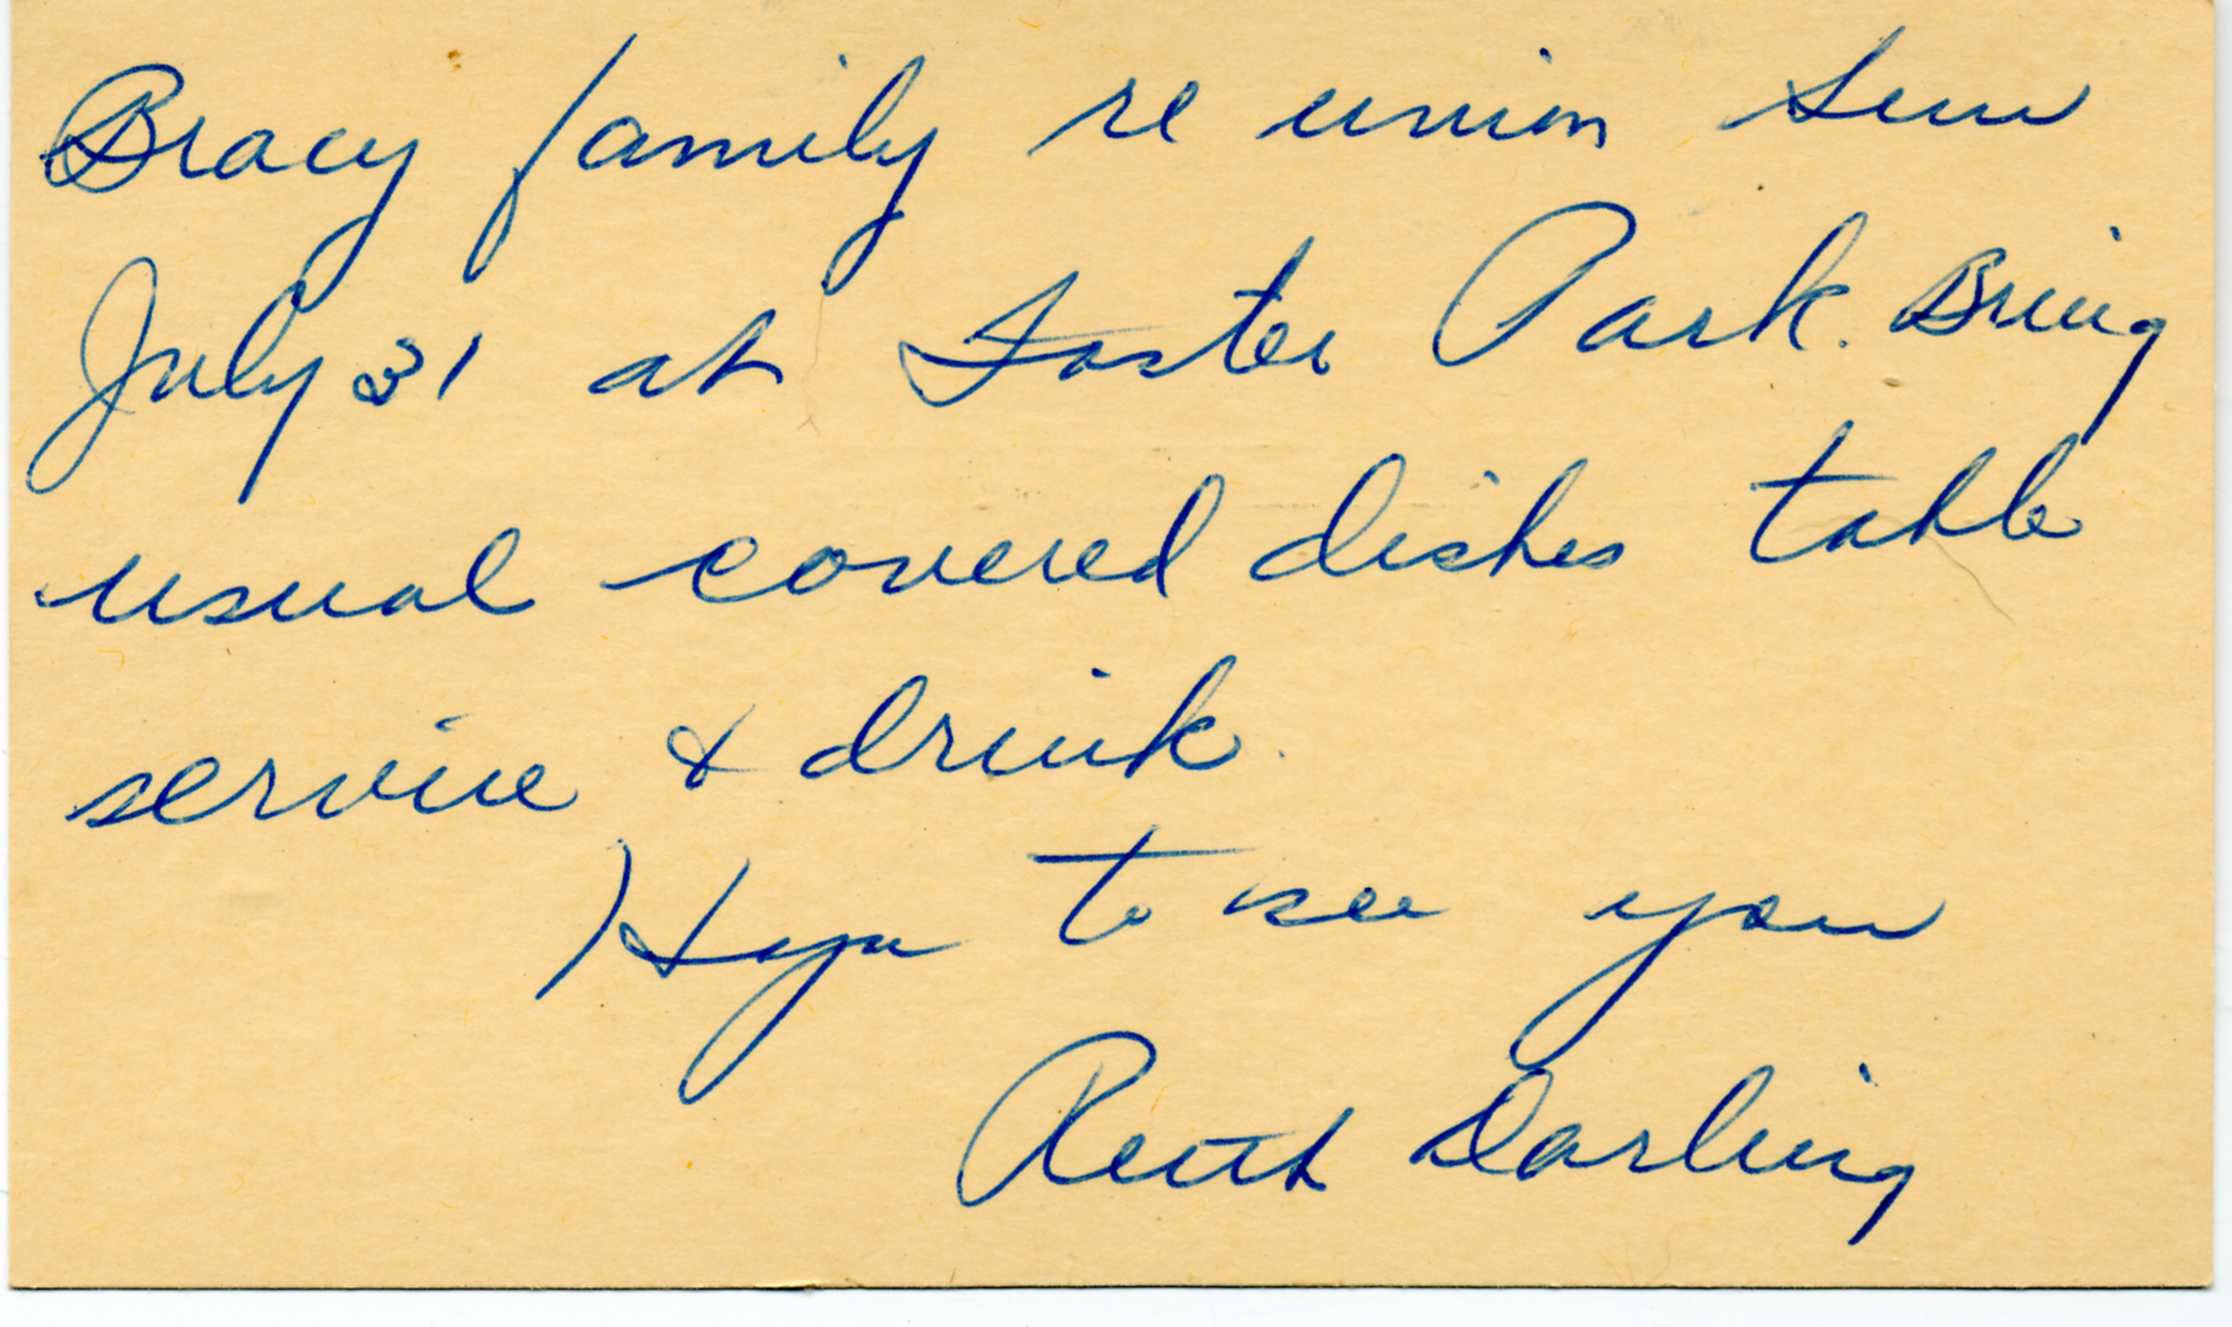 Bracy family re union Sun
July 31 at Foster Park. Bring
usual covered dishes table
service & drink.
Hope to see you
Ruth Darling